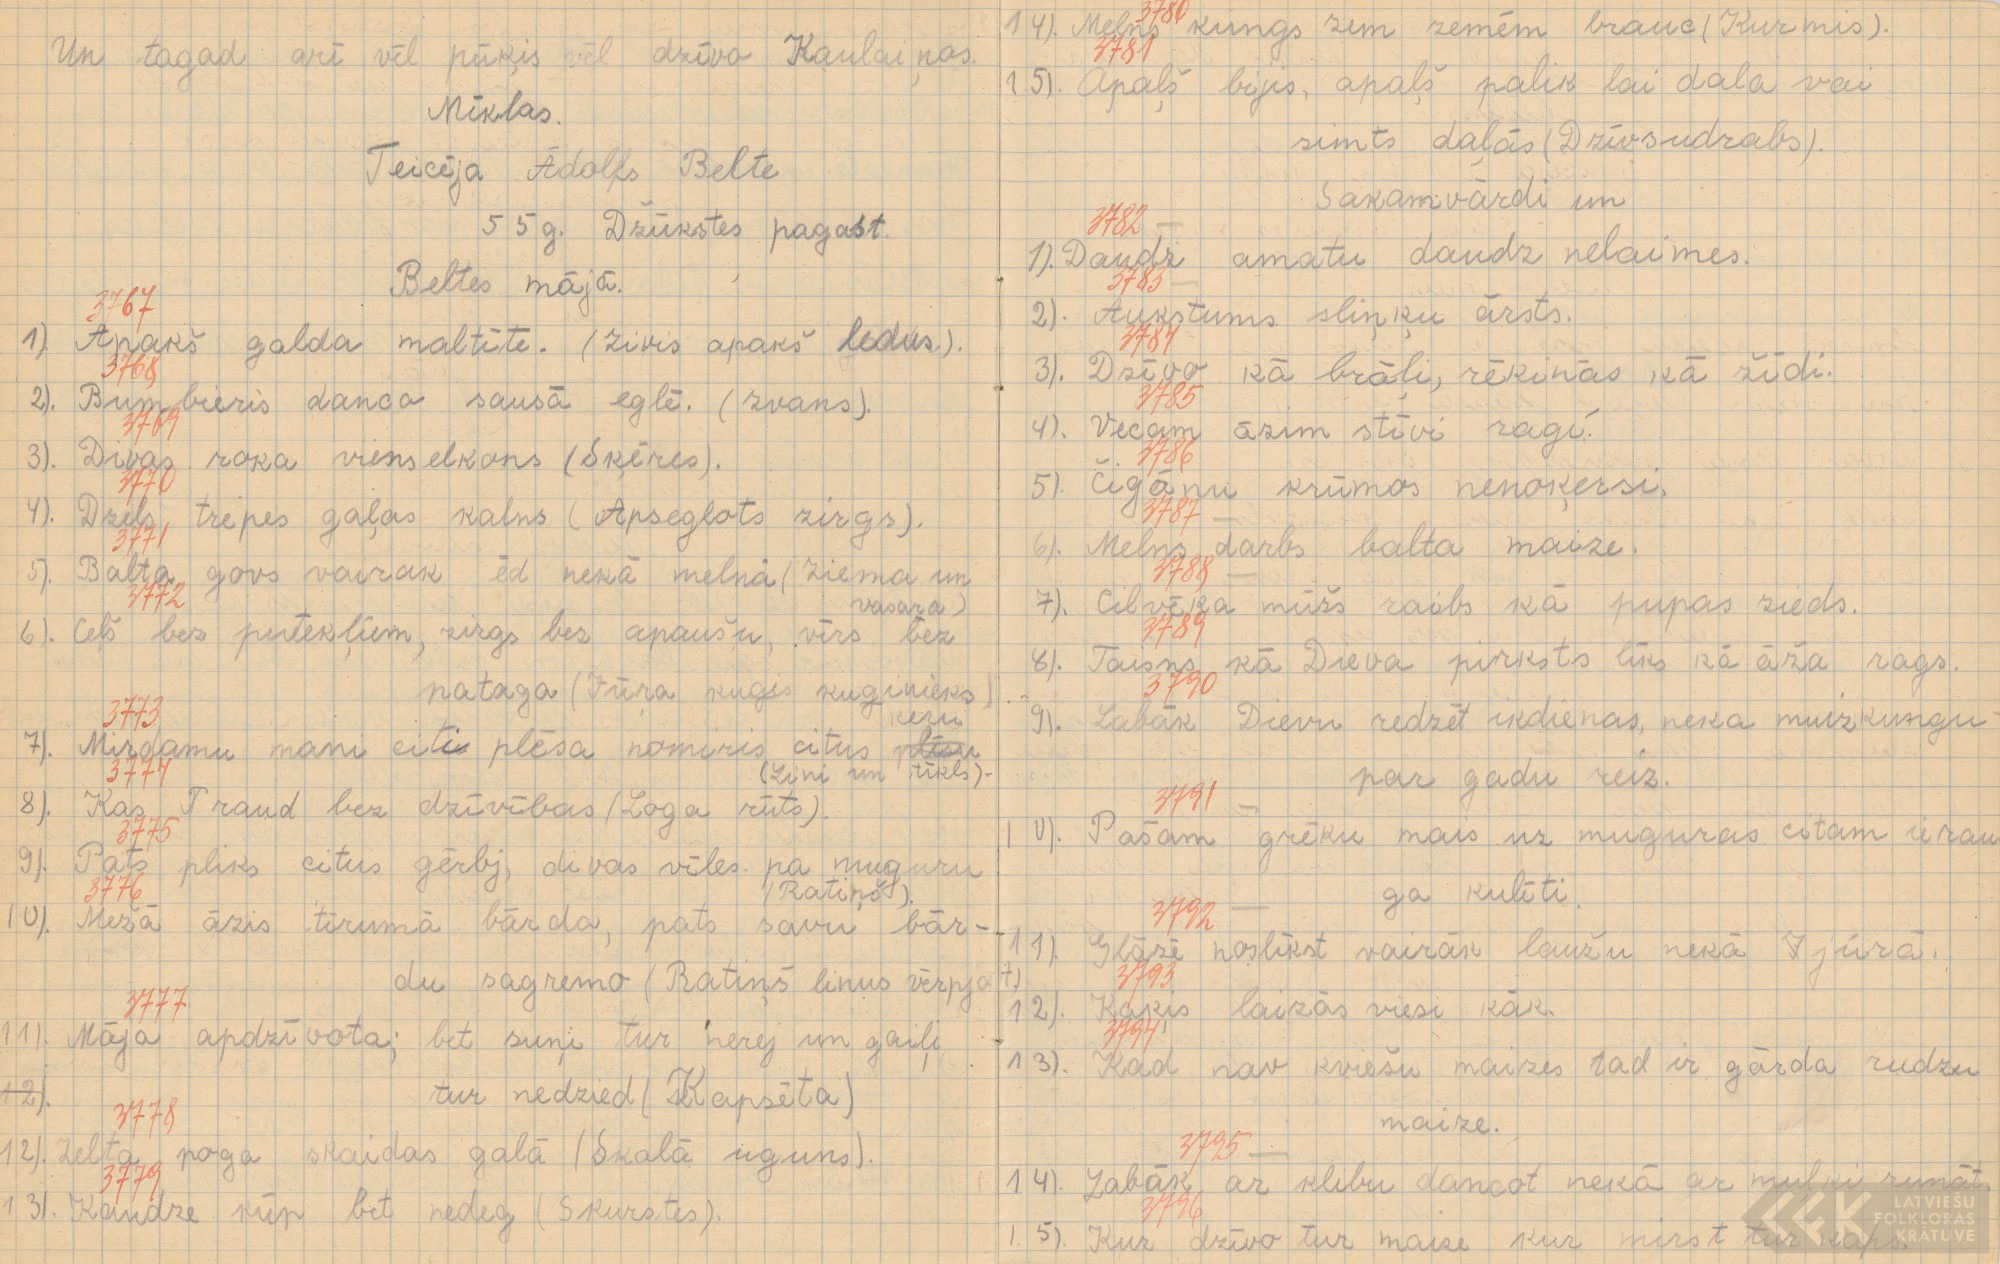 Un tagad arī vēl pūķis vēl dzīvo Kaulaiņos.
Mīklas.
Teicēja Ādolfs Belte
55g. Džūkstes pagast.
Beltes mājā.
3767
1) Apakš galda maltīte. (Zivis apakš ledus).
3768
2). Bumbieris danco sausā eglē. (Zvans).
3769
3). Divas roka viens elkons (Šķēres).
3770
4). Dzels trepes gaļas kalns (Apseglots zirgs).
3771
5). Balta govs vairak ēd nekā melnā (Ziema un
vasara)
3772
6). Ceļš bez putekļiem, zirgs bez apaušu, vīrs bez
pataga (Jūŗa kuģis kuģinieks)
3773
ķeŗu
7). Mirdamu mani citi plēsa nomiris citus plēsu
(Lini un tīkls).
3774
8). Kas raud bez dzīvības (Loga rūts).
3775
9). Pats pliks citus gērbj, divas vīles pa muguru
(Ratiņš).
3776
10). Mežā āzis tīrumā bārda, pats savu bār-
du sagremo (Ratiņš linus vērpjot)
3777
11). Māja apdzīvota; bet suņi tur nerej un gaiļi
12).
tur nedzied (Kapsēta)
3778
12). Zelta poga skaidas galā (Skalā uguns).
3779
13). Kaudze kūp bet nedeg (Skurstes).
3780
14). Melns kungs zem zemēm brauc (Kurmis).
3781
15). Apaļš bijis, apaļš palik lai dala vai
simts daļās (Dzīvsudrabs).
Sakamvārdi un
3782 —
1). Daudz amatu daudz nelaimes.
3783 —
2). Aukstums sliņķu ārsts.
3784
3). Dzīvo kā brāļi, rēkinās kā žīdi.
3785
4). Vecam āzim stīvi ragi.
3786
5). Čigānu krūmos nenoķersi.
3787 —
6). Melns darbs balta maize.
3788 —
7). Cilvēka mūžs raibs kā pupas zieds.
3789
8). Taisns kā Dieva pirksts līks kā āža rags.
3790
9). Labāk Dievu redzēt ikdienas, neka muizkungu
par gadu reiz.
3791 —
10). Pašam grēku mais uz muguras citam ierau
ga kulīti.
3792 —
11). Glāzē noslīkst vairāk laužu nekā jūrā.
3793
12). Kaķis laizās viesi kāk.
3794
13). Kad nav kviešu maizes tad ir gārda rudzu
maize.
3795 —
14). Labāk ar klibu dancot nekā ar muļķi runāt.
3796
15). Kur dzīvo tur maize kur mirst tur kaps.
LATVIEŠU
FOLKLORAS
KRĀTUVE